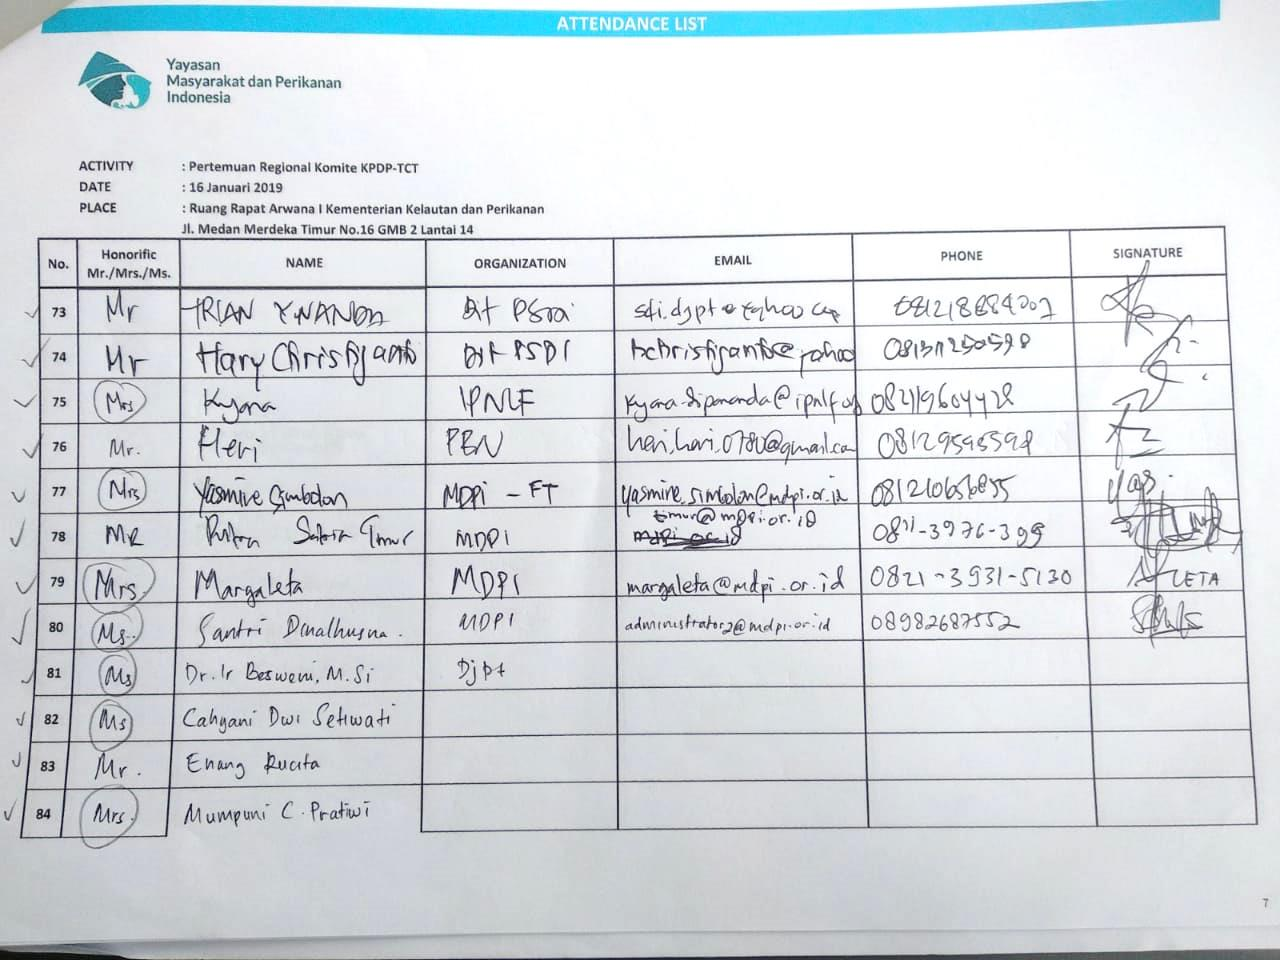 ATTENDANCE LIST
Yayasan
Masyarakat dan Perikanan
Indonesia
ACTIVITY : Pertemuan Regional Komite KPDP-TCT
DATE : 16 Januari 2019
PLACE : Ruang Rapat Arwana I Kementerian Kelautan dan Perikanan
Jl. Medan Merdeka Timur No.16 GMB 2 Lantai 14
No. Honorific Mr./Mrs./Ms. NAME ORGANIZATION EMAIL PHONE SIGNATURE
73 Mr TRIAN YUNANDA Dit
74 Mr Hary Christijanto Dit PSDI
75 Mrs Kyana IPNLF
76 Mr. Heri PBN 08129595598
77 Mrs Yasmine Simbolon MDPI - FT yasmine.simbolon@mdpi.or.id Yas.
78 MR Putra Satria Timur MDPI timur@mdpi.or.id 0811-3976-399
79 Mrs. Margaleta MDPI margaleta@mdpi.or.id 0821-3931-5130 LETA
80 Ms. Santri MDPI administrator2@mdpi.or.id 08982687552
81 Ms Dr. Ir Besweni, M.Si Djpt
82 Ms Cahyani Dwi Setiwati
83 Mr. Enang Rucita
84 Mrs. Mumpuni C. Pratiwi
7